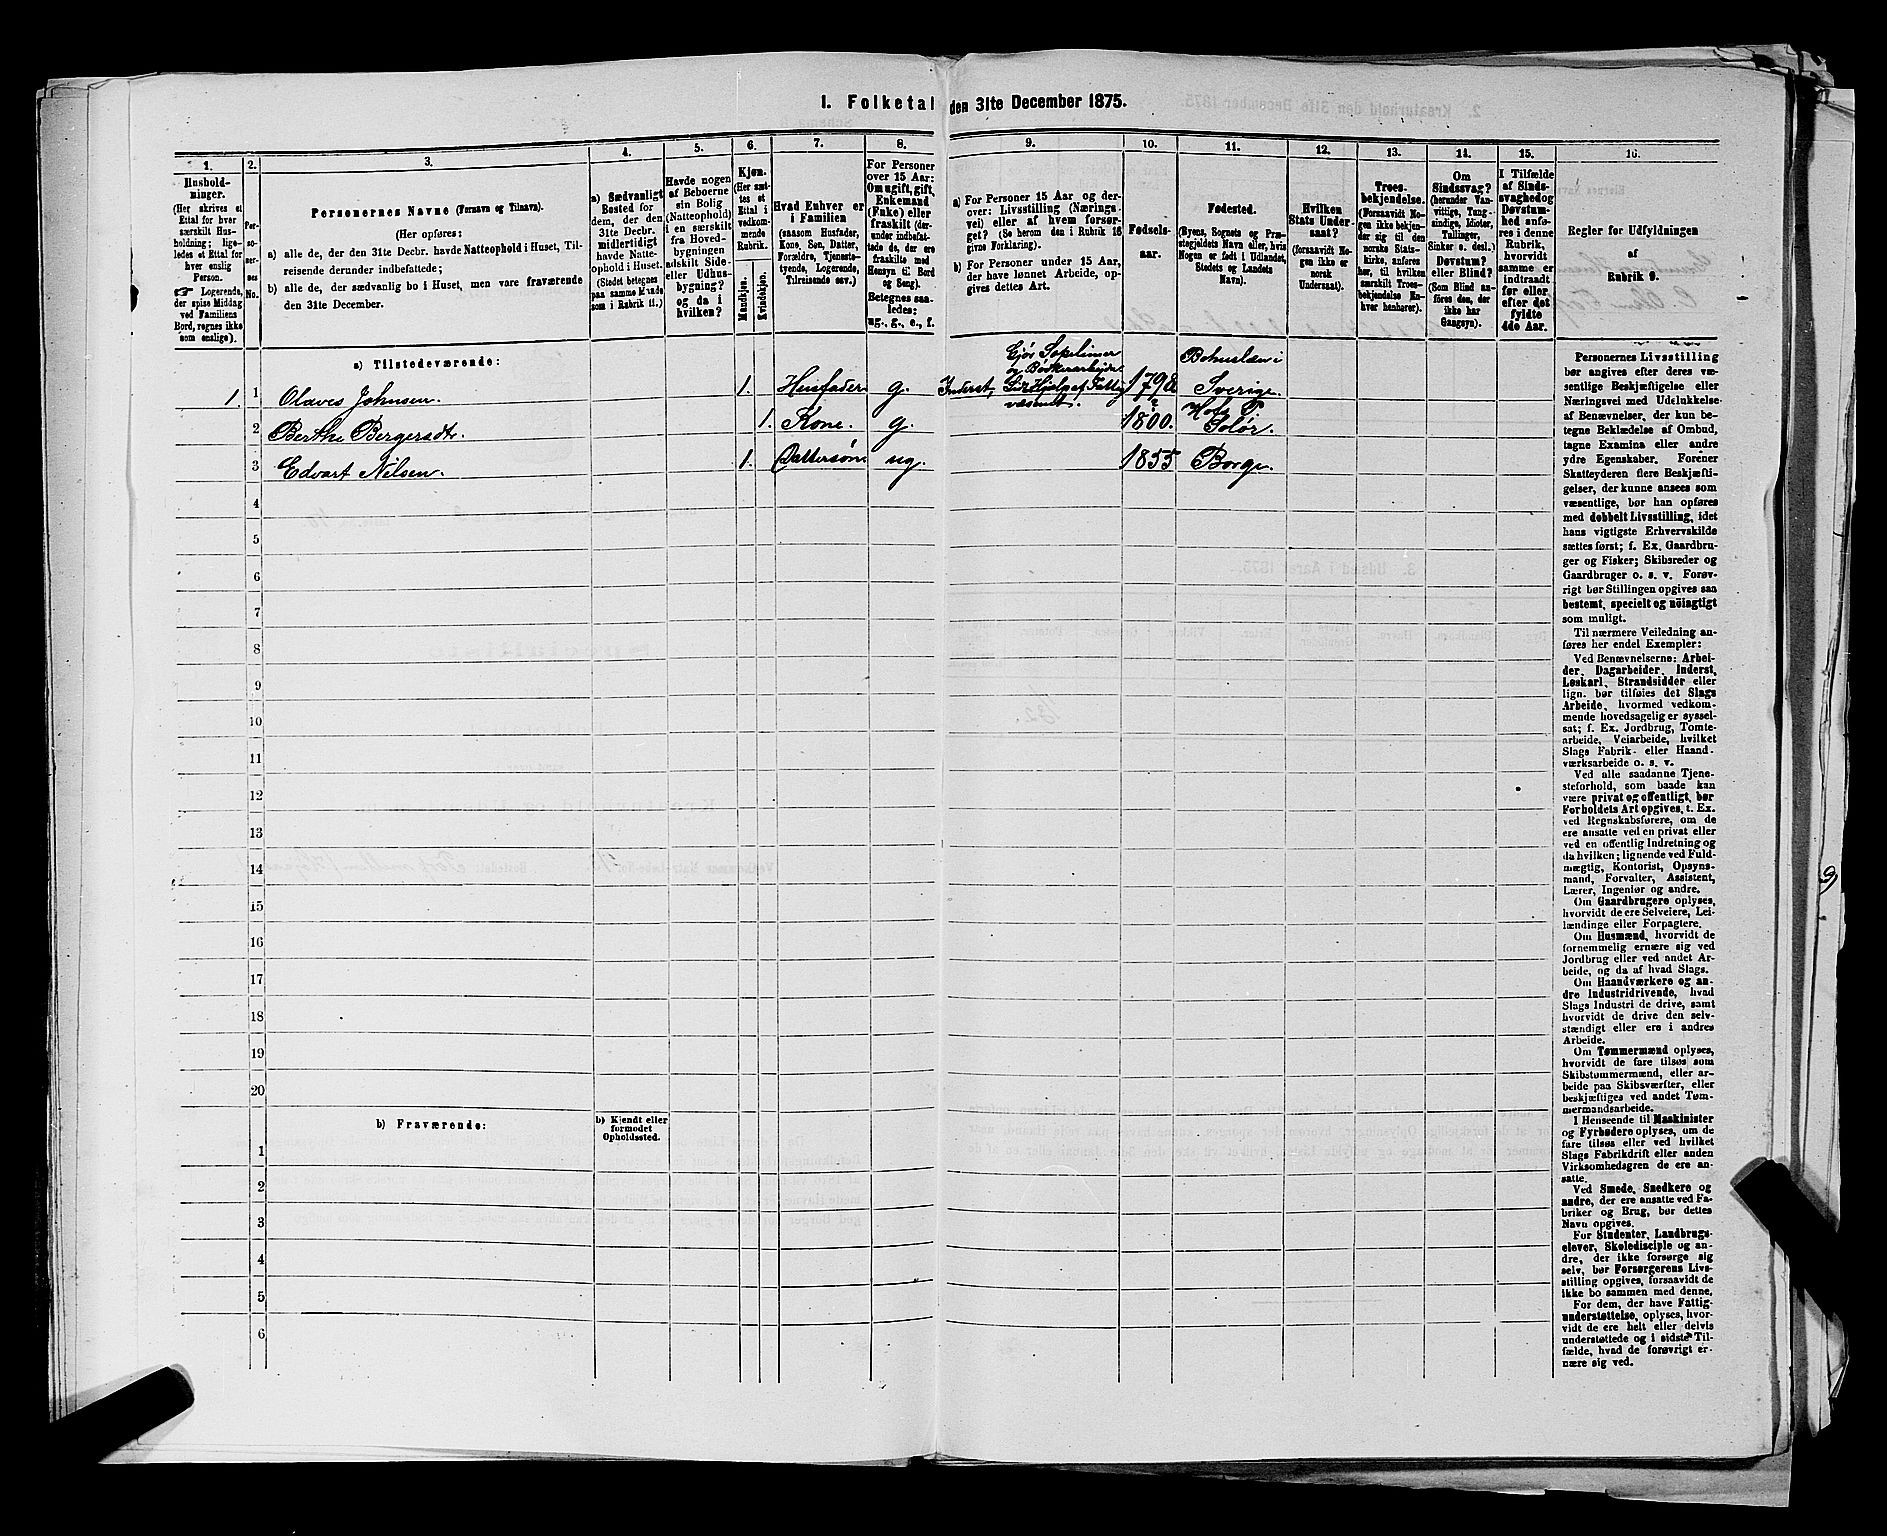 1. Folketal den 31te December 1875.
1. 2. 3. 4. 5. 6. 7. 8. 9. 10. 11. 12. 13. 14. 15. 16.
Hushold-
ninger.
(Her skrives et
Ettal for hver
særskilt Hus-
holdning; lige-
ledes et Ettal for
hver enslig
Person.
☞ Logerende,
der spise Middag
ved Familiens
Bord, regnes ikke
som enslige).
Per-
so-
ner-
nes
No.
Personernes Navne (Fornavn og Tilnavn).
(Her opføres:
a) alle de, der den 31te Decbr. havde Natteophold i Huset, Til-
reisende derunder indbefattede;
b) alle de, der sædvanlig bo i Huset, men vare fraværende
den 31te December.
a) Sædvanligt
Bosted for
dem, der den
31te Decbr.
midlertidigt
havde Natte-
ophold i Huset.
(Stedet betegnes
paa samme Maade
som i Rubrik 11.)
Havde nogen
af Beboerne
sin Bolig
(Natteophold)
i en særskilt
fra Hoved-
bygningen
adskilt Side-
eller Udhus-
bygning?
og da i
hvilken?
Kjøn.
(Her sæt-
tes et
Ettal i
vedkom-
mende
Rubrik.
Mandkjøn.
Kvindekjøn.
Hvad Enhver er
i Familien
(saasom Husfader,
Kone, Søn, Datter,
Forældre, Tjeneste-
tyende, Logerende,
Tilreisende osv.)
For Personer
over 15 Aar:
Om ugift, gift,
Enkemand
(Enke) eller
fraskilt (der-
under indbefat-
tede de, der ere
fraskilte med
Hensyn til Bord
og Seng).
Betegnes saa-
ledes:
ug., g., e., f.
a) For Personer 15 Aar og der-
over: Livsstilling (Nærings-
vei) eller af hvem forsør-
get? (Se herom den i Rubrik 16
givne Forklaring).
b) For Personer under 15 Aar,
der have lønnet Arbeide, op-
gives dettes Art.
Fødsels-
aar.
Fødested.
(Byens, Sognets og Præ-
stegjeldets Navn eller, hvis
Nogen er født i Udlandet,
Stedets og Landets
Navn).
Hvilken
Stats Under-
saat?
(forsaavidt No-
gen ikke er
norsk
Undersaat).
Troes-
bekjendelse.
(Forsaavidt No-
gen ikke bekjen-
der sig til den
norske Stats-
kirke, anføres
her, til hvilken
særskilt Troes-
bekjendelse En-
hver henhører).
Om
Sindssvag?
(herunder Van-
vittige, Tung-
sindige, Idioter,
Tullinger,
Sinker o. desl.)
Døvstum?
eller Blind?
(Som Blind an-
føres den, der
ikke har
Gangsyn).
I Tilfælde
af Sinds-
svaghed og
Døvstum-
hed anfø-
res i denne
Rubrik,
hvorvidt
samme er
indtraadt
før eller
efter det
fyldte
4de Aar.
Regler for Udfyldningen
af
Rubrik 9.
a) Tilstedeværende:
1. 1 Olaves Johnsen. 1. Husfader g. Inderst, Gjør Sopelimer
og Bødkerarbejde
Lidt Hjelp af Fattig
væsenet. 1798 Bohuslæn i
Sverige.
2 Berthe Bergersdtr. 1. Kone. g. 1800. ? Hof P.
Solør.
3 Edvart Nilsen. 1. Dattersøn ug. 1855 Borge.
4
5
6
7
8
9
10
11
12
13
14
15
16
17
18
19
20
b) Fraværende:
b) Kjendt eller
formodet
Opholdssted.
1
2
3
4
5
6
Personernes Livsstilling
bør angives efter deres væ-
sentlige Beskjæftigelse eller
Næringsvei med Udelukkelse
af Benævnelser, der kun be-
tegne Beklædelse af Ombud,
tagne Examina eller andre
ydre Egenskaber. Forener
Skatteyderen flere Beskjæfti-
gelser, der kunne ansees som
væsentlige, bør han opføres
med dobbelt Livsstilling, idet
hans vigtigste Erhvervskilde
sættes først; f. Ex. Gaardbru-
ger og Fisker; Skibsreder og
Gaardbruger o. s. v. Forøv-
rigt bør Stillingen opgives saa
bestemt, specielt og nöiagtigt
som muligt.
Til nærmere Veiledning an-
føres her endel Exempler:
Ved Benævnelserne: Arbei-
der, Dagarbeider, Inderst,
Løskarl, Strandsidder eller
lign. bør tilføies det Slags
Arbeide, hvormed vedkom-
mende hovedsagelig er syssel-
sat; f. Ex. Jordbrug, Tomte-
arbeide, Veiarbeide, hvilket
Slags Fabrik- eller Haand-
værksarbeide o. s. v.
Ved alle saadanne Tjene-
steforhold, som baade kan
være privat og offentligt, bør
Forholdets Art opgives, t. Ex.
ved Regnskabsførere, om de
ere ansatte ved en privat eller
ved en offentlig Indretning og
da hvilken; lignende ved Fuld-
mægtig, Kontorist, Opsyns-
mand, Forvalter, Assistent,
Lærer, Ingeniør og andre.
Om Gaardbrugere oplyses,
hvorvidt de ere Selveiere, Lei-
lændinge eller Forpagtere.
Om Husmænd, hvorvidt de
fornemmelig ernære sig ved
Jordbrug eller ved andet Ar-
beide, og da af hvad Slags.
Om Haandværkere og an-
dre Industridrivende, hvad
Slags Industri de drive, samt
hvorvidt de drive den selv-
stændigt eller ere i andres
Arbeide.
Om Tømmermænd oplyses,
hvorvidt de fare tilsøs som
Skibstømmermænd, eller ar-
beide paa Skibsværfter, eller
beskjæftiges ved andet Tøm-
mermandsarbeide.
I Henseende til Maskinister
og Fyrbødere oplyses, om de
fare tilsøs eller ved hvilket
Slags Fabrikdrift eller anden
Virksomhedsgren de ere an-
satte.
Ved Smede, Snedkere og
andre, der ere ansatte ved Fa-
briker og Brug, bør dettes
Navn opgives.
For Studenter, Landbrugs-
elever, Skoledisciple og an-
dre, der ikke forsørge sig
selv, bør Forsørgerens Livs-
stilling opgives, forsaavidt de
ikke bo sammen med denne.
For dem, der have Fattig-
understøttelse, oplyses, hvor-
vidt de ere helt eller delvis
understøttede og i sidste Til-
fælde, hvad de forøvrigt er-
nære sig ved.